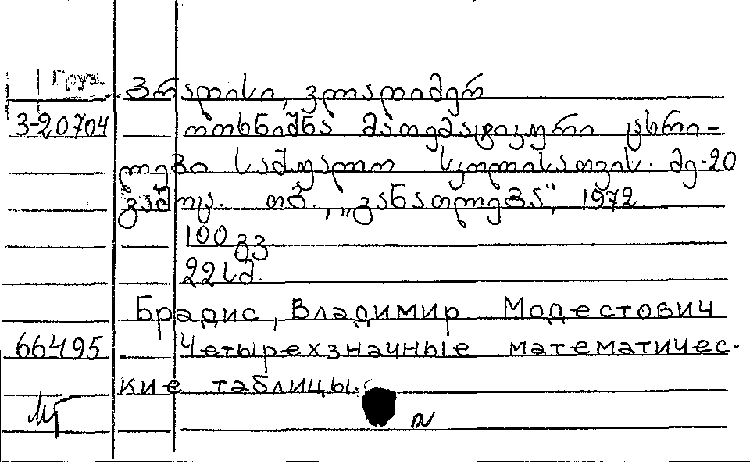 Груз. ბრადისი, ვლადიმერ
3-20704 ოთხნიშნა მათემატიკური ცხრი-
ლები საშუალო სკოლისათვის. მე-20
გამოც. თბ., „განათლება“, 1972
100 გვ
22 სმ.
Брадис, Владимир Модестович
66495 Четырехзначные математичес-
кие таблицы.